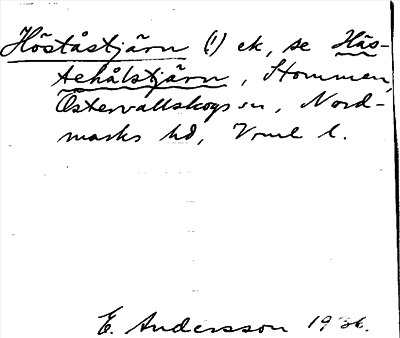 Höståstjärn (1) ek, se Häs-
tehålstjärn, Hommen,
Östervallskogs sn, Nord-
marks hd, Vrml l.
E. Andersson 1936.